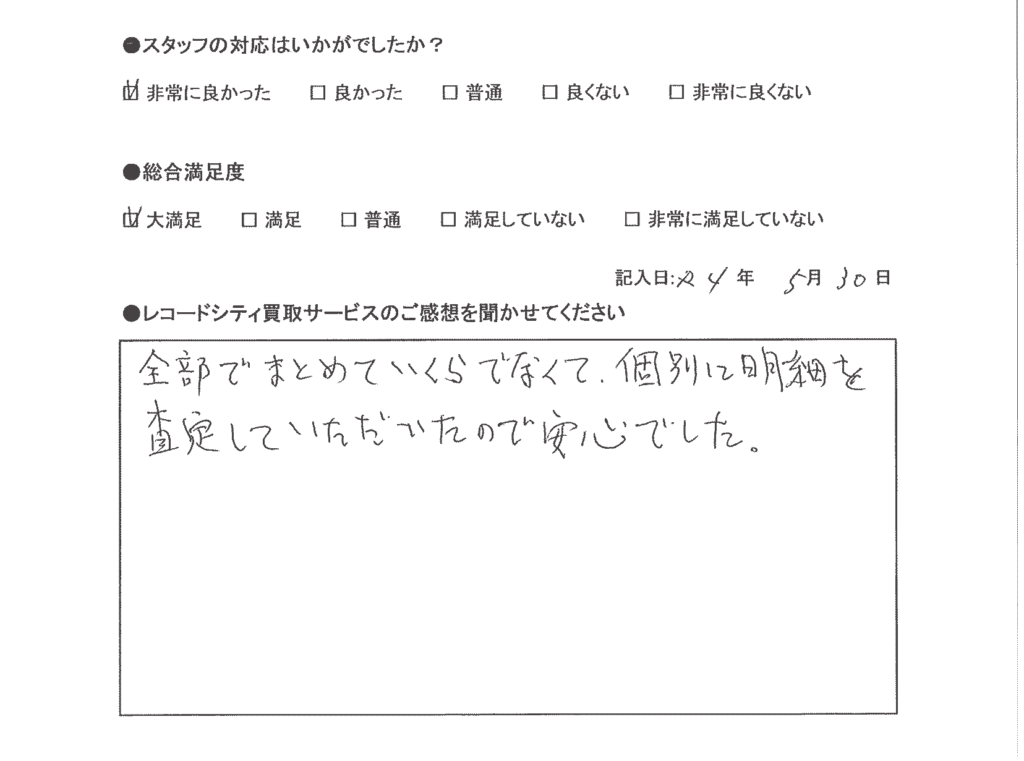 ●スタッフの対応はいかがでしたか？
☑ 非常に良かった □ 良かった □ 普通 □ 良くない □ 非常に良くない
●総合満足度
☑ 大満足 □ 満足 □ 普通 □ 満足していない □ 非常に満足していない
記入日:24年 5月30日
●レコードシティ買取サービスのご感想を聞かせてください
全部でまとめていくらでなくて、個別に明細を
査定していただいたので安心でした。